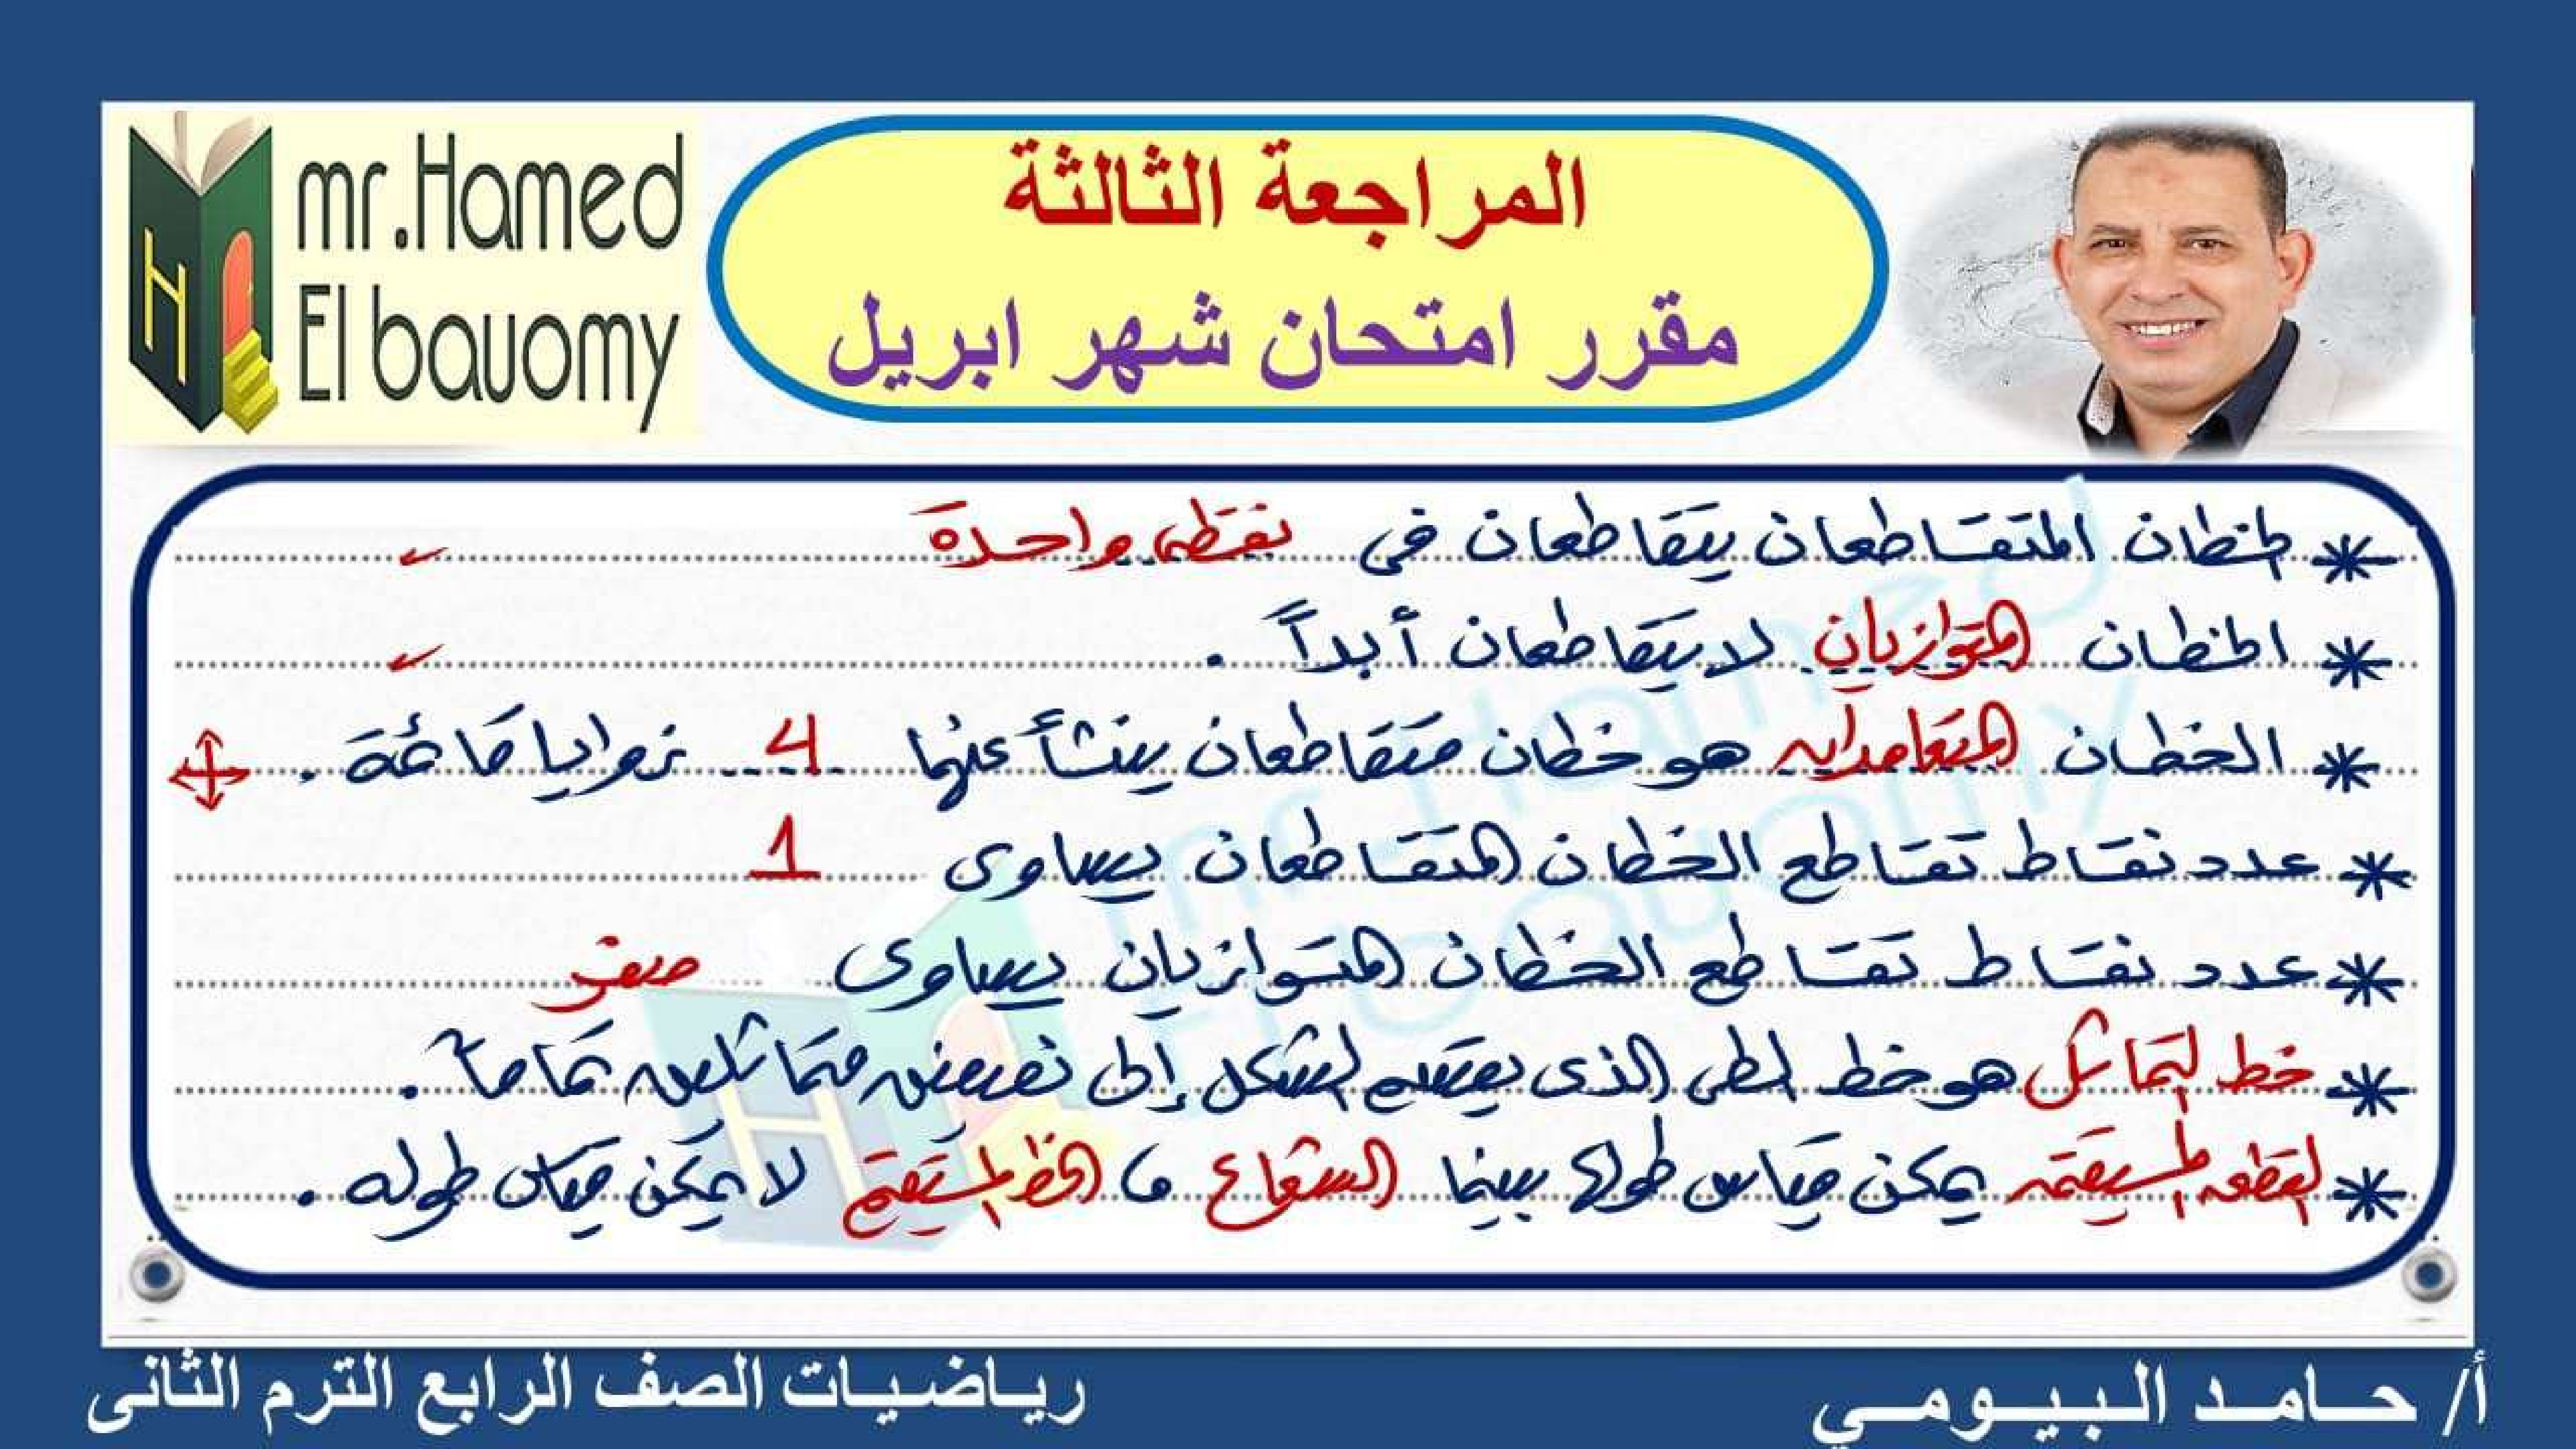 mr.Hamed
El bauomy
المراجعة الثالثة
مقرر امتحان شهر ابريل
* الخطان المتقاطعان يتقاطعان فى نقطة واحدة
* الخطان المتوازيان لا يتقاطعان أبداً .
* الخطان المتعامدان هو خطان متقاطعان ينشأ عنهما 4 زوايا قائمة .
* عدد نقاط تقاطع الخطان المتقاطعان يساوى 1
* عدد نقاط تقاطع الخطان المتوازيان يساوى صفر
* خط التماثل هو خط الطى الذى يقسم الشكل إلى نصفين متماثلين تماماً .
* القطعة المستقيمة يمكن قياس طولها بينما الشعاع ، الخط المستقيم لا يمكن قياس طوله .
أ/ حـامـد الـبـيـومـي
ريـاضـيـات الصف الرابع الترم الثانى